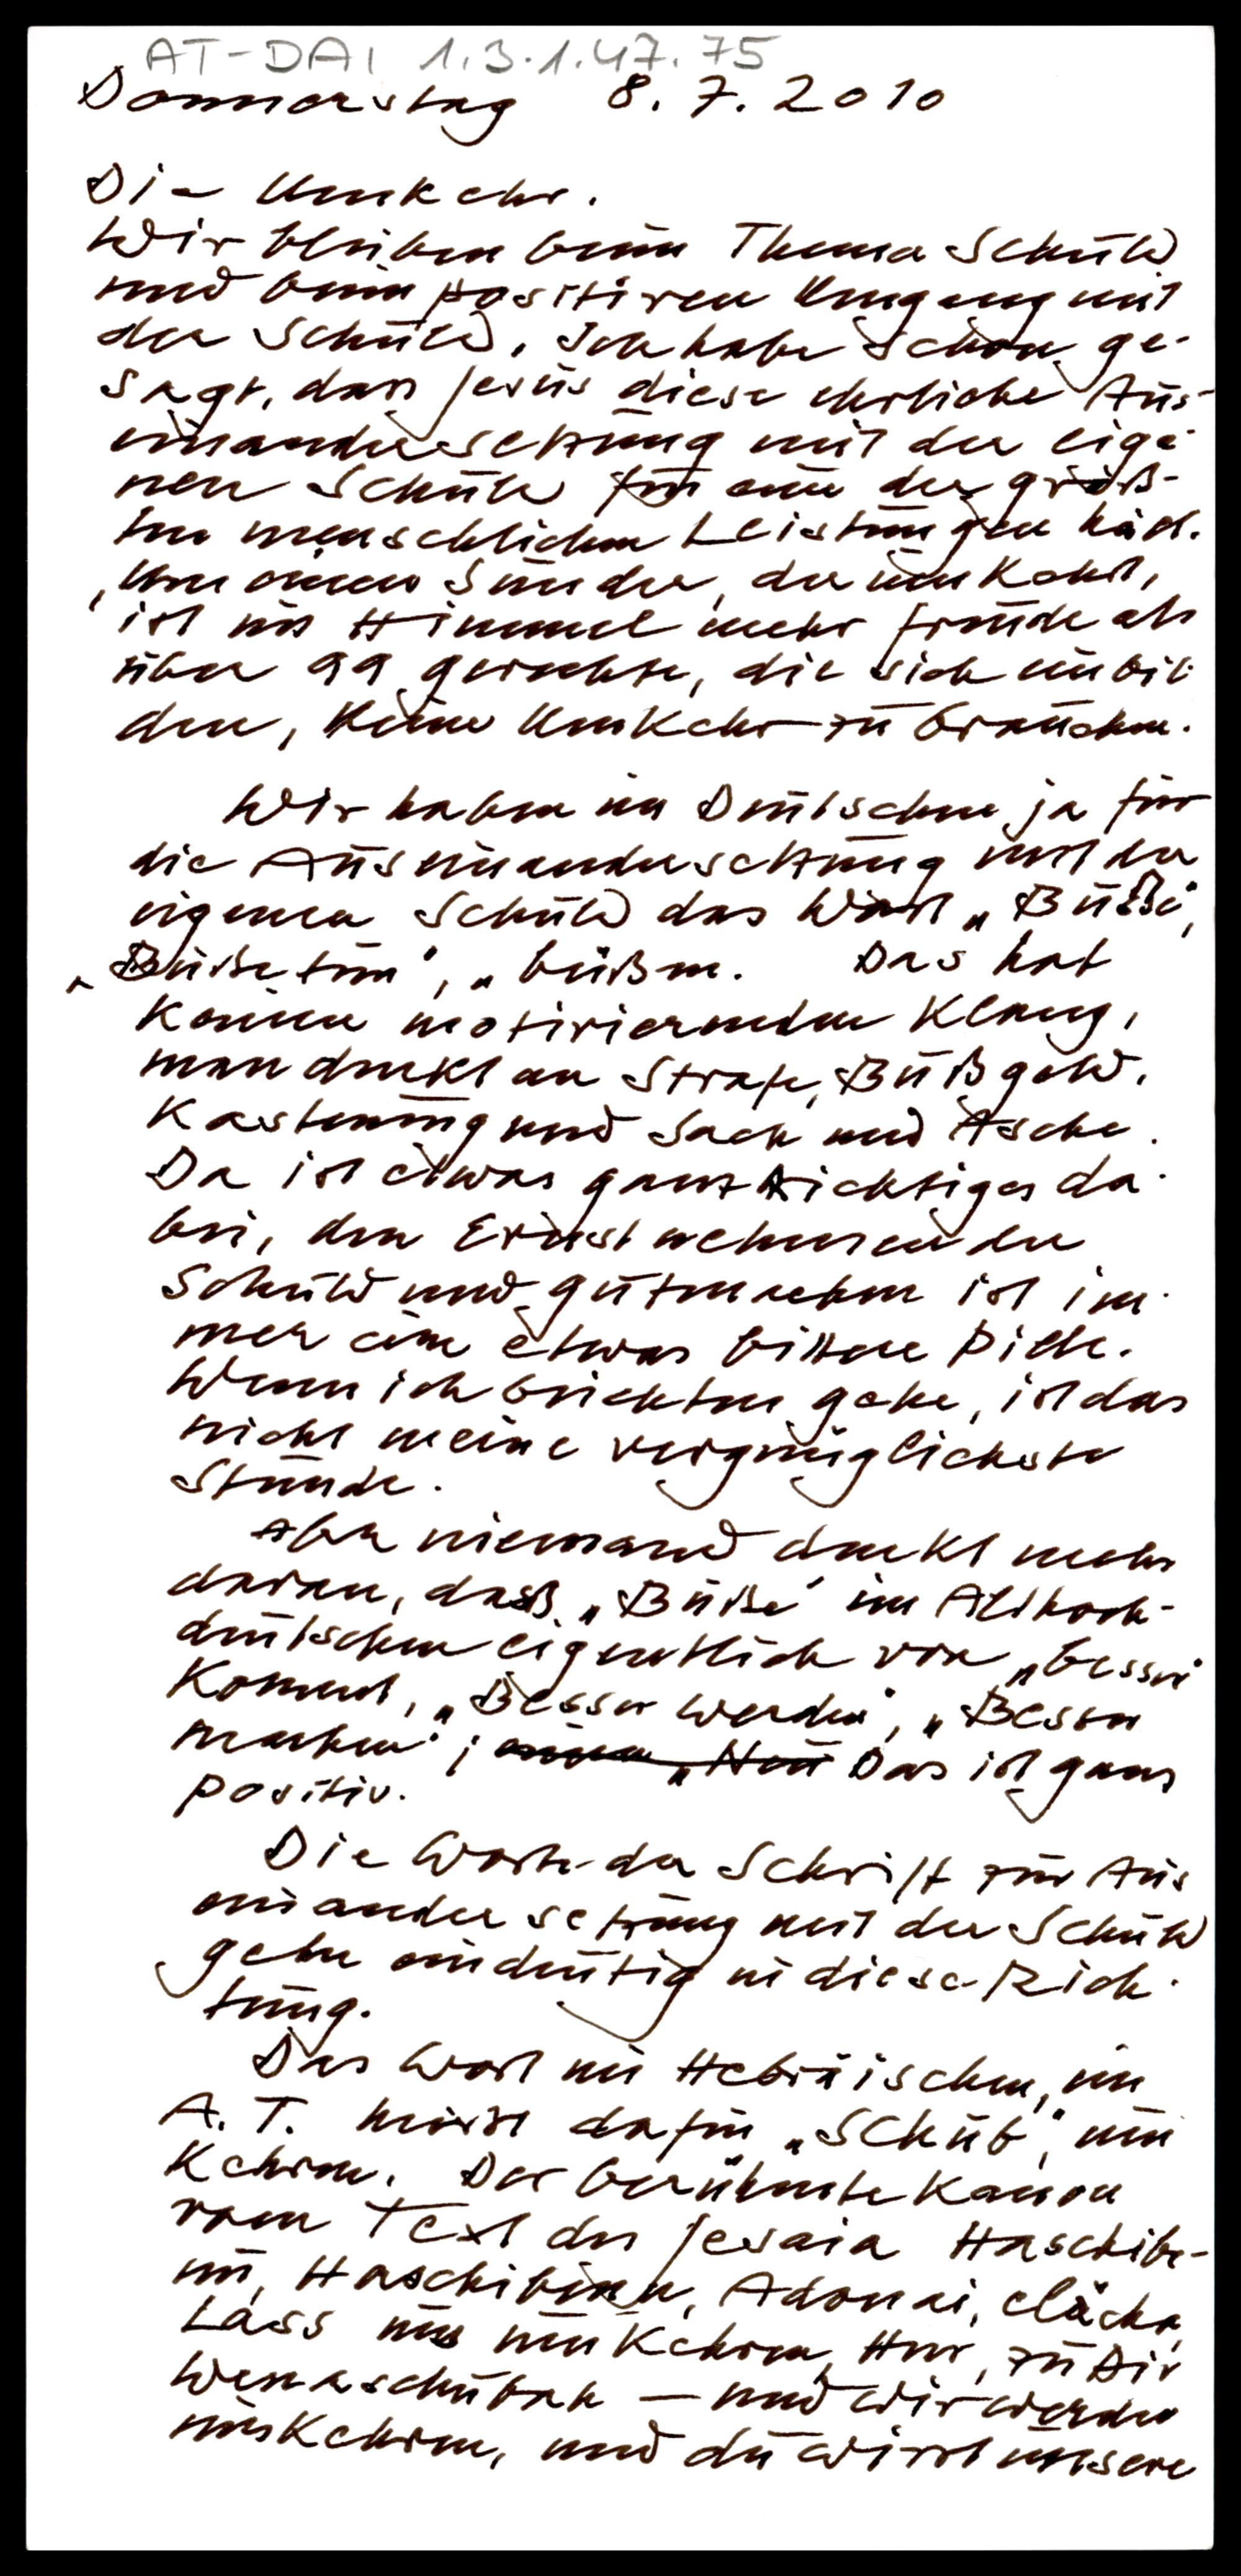 AT-DAI 1.3.1.47.75
Donnerstag 8.7.2010
Die Umkehr.
Wir bleiben beim Thema Schuld
und beim positiven Umgang mit
der Schuld. Ich habe schon ge-
sagt, dass Jesus diese ehrliche Aus-
einandersetzung mit der eige-
nen Schuld für eine der größ-
ten menschlichen Leistungen hält.
„Um einen Sünder, der umkehrt,
ist im Himmel mehr Freude als
über 99 gerechte, die sich einbil-
den, keine Umkehr zu brauchen.
Wir haben im Deutschen ja für
die Auseinandersetzung mit der
eigenen Schuld das Wort „Buße",
„Buße tun", „büßen. Das hat
keinen motivierenden Klang,
man denkt an Strafe, Bußgeld,
Kasteiung und Sack und Asche.
Da ist etwas ganz Richtiges da-
bei, denn Ernstnehmen der
Schuld und gutmachen ist im-
mer eine etwas bittere Pille.
Wenn ich beichten gehe, ist das
nicht meine vergnüglichste
Stunde.
Aber niemand denkt mehr
daran, dass „Buße" im Althoch-
deutschen eigentlich von „besser"
kommt, „Besser werden", „Besser
machen"; Das ist ganz
positiv.
Die Worte der Schrift zur Aus
einandersetzung mit der Schuld
gehen eindeutig in diese Rich-
tung.
Das Wort im Hebräischen, im
A.T. heißt dafür „Schub", um
kehren. Der berühmte Kanon
vom Text des Jesaia Haschibe-
nu, Haschibenu, Adonai, elächa,
Lass uns umkehren, Herr, zu Dir
Wenaschubah – und wir werden
umkehren, und du wirst unsere